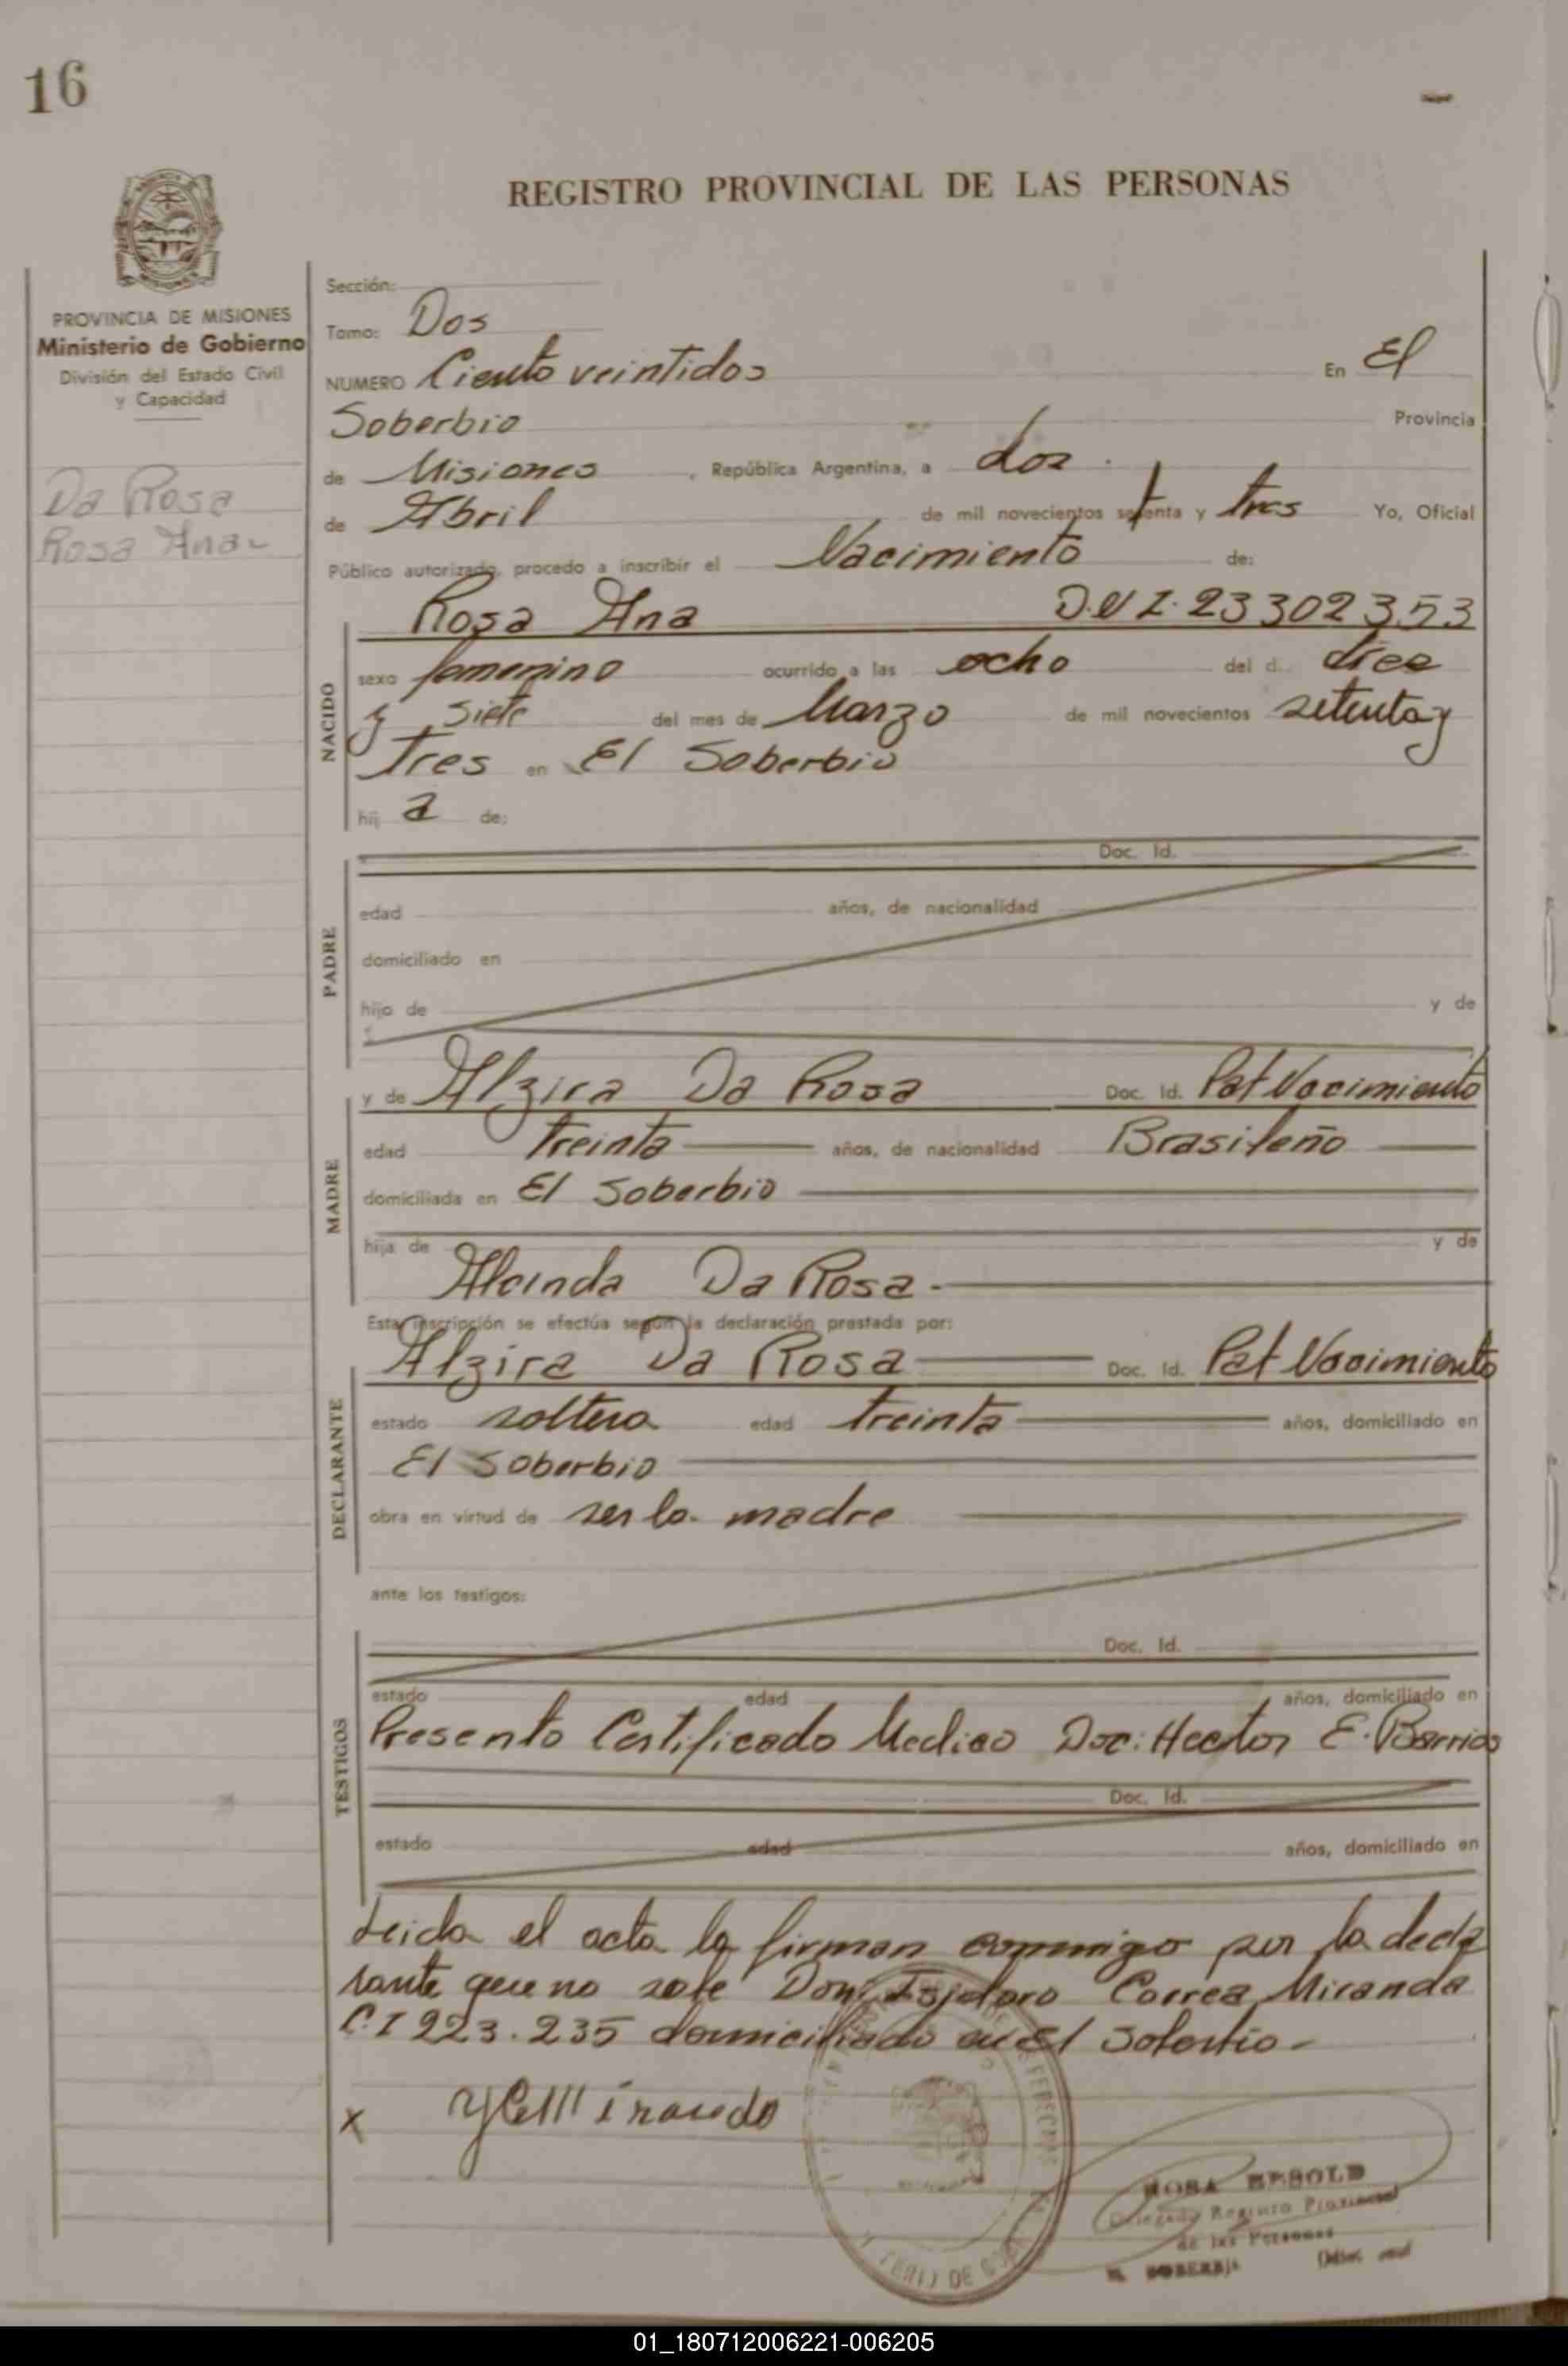 16
REGISTRO PROVINCIAL DE LAS PERSONAS
PROVINCIA DE MISIONES
Ministerio de Gobierno
División del Estado Civil
y Capacidad
Da Rosa
Rosa Ana
Sección:
Tomo: Dos
NUMERO Ciento veintidos En El
Soberbio Provincia
de Misiones, República Argentina, a dos
de Abril de mil novecientos setenta y tres Yo, Oficial
Público autorizado, procedo a inscribir el Nacimiento de:
NACIDO
Rosa Ana D.N I. 23302353
sexo femenino ocurrido a las ocho del d. diez
y siete del mes de Marzo de mil novecientos setenta y
Tres en El Soberbio
hij a de:
PADRE
Doc. Id.
edad años, de nacionalidad
domiciliado en
hijo de y de
MADRE
y de Alzira Da Rosa Doc. Id. Pat Nacimiento
edad treinta años, de nacionalidad Brasileño
domiciliada en El Soberbio
hija de y de
Alcinda Da Rosa.-
Esta inscripción se efectúa según la declaración prestada por:
DECLARANTE
Alzira Da Rosa Doc. Id. Pat Nacimiento
estado soltera edad treinta años, domiciliado en
El Soberbio
obra en virtud de ser la madre
ante los testigos:
TESTIGOS
Doc. Id.
estado edad años, domiciliado en
Presento Certificado Medico Doc: Hector E. Barrios
Doc. Id.
estado edad años, domiciliado en
Leida el acta la firman conmigo por la decla
rante que no sabe Don Correa Miranda
C.I 223.235 domiciliado en El Soberbio-
X
ROSA BESOLD
Delegada Registro Provincial
de las Personas
EL SOBERBIO
01_180712006221-006205